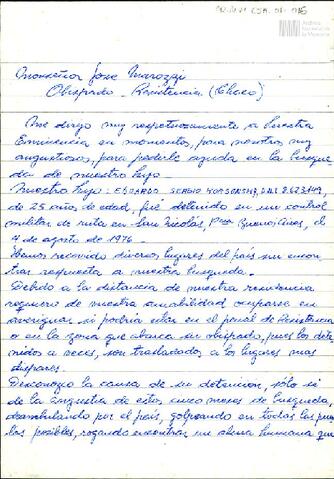 Archivo
Nacional de
la Memoria
Monseñor Jose Marozzi
Obispado - Resistencia (Chaco)
Me dirijo muy respetuosamente a Vuestra
Eminencia en momentos, para nosotros muy
angustiosos, para pedirle ayuda en la búsque
da de nuestro hijo.
Nuestro hijo: EDUARDO SERGIO
de 25 años de edad, fué detenido en un control
militar de ruta en San Nicolás, Pcia Buenos Aires, el
4 de agosto de 1976.
Hemos recorrido diversos lugares del país sin encon
trar respuesta a nuestra búsqueda.
Debido a la distancia de nuestra residencia
requiero de vuestra amabilidad ocuparse en
averiguar si podría estar en el penal de Resistencia
o en la zona que abarca su obispado, pues los dete
nidos a veces, son trasladados a los lugares mas
dispares.
Desconozco la causa de su detencion, sólo sí
de la angustia de estos cinco meses de búsqueda,
deambulando por el país, golpeando en todas las puer
tas posibles, rogando encontrar un alma humana que